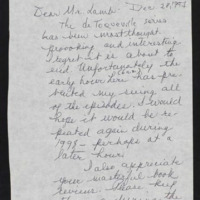 Dear Mr. Lamb: Dec. 29, 1997
The de Tocqueville series
has been most thought
provoking and interesting.
I regret it is about to
end. Unfortunately the
early hour here has pre-
vented my seeing all
of the episodes. I would
hope it would be re-
peated again during
1998 – perhaps at a
later hour.
I also appreciate
your masterful book
reviews. These keep